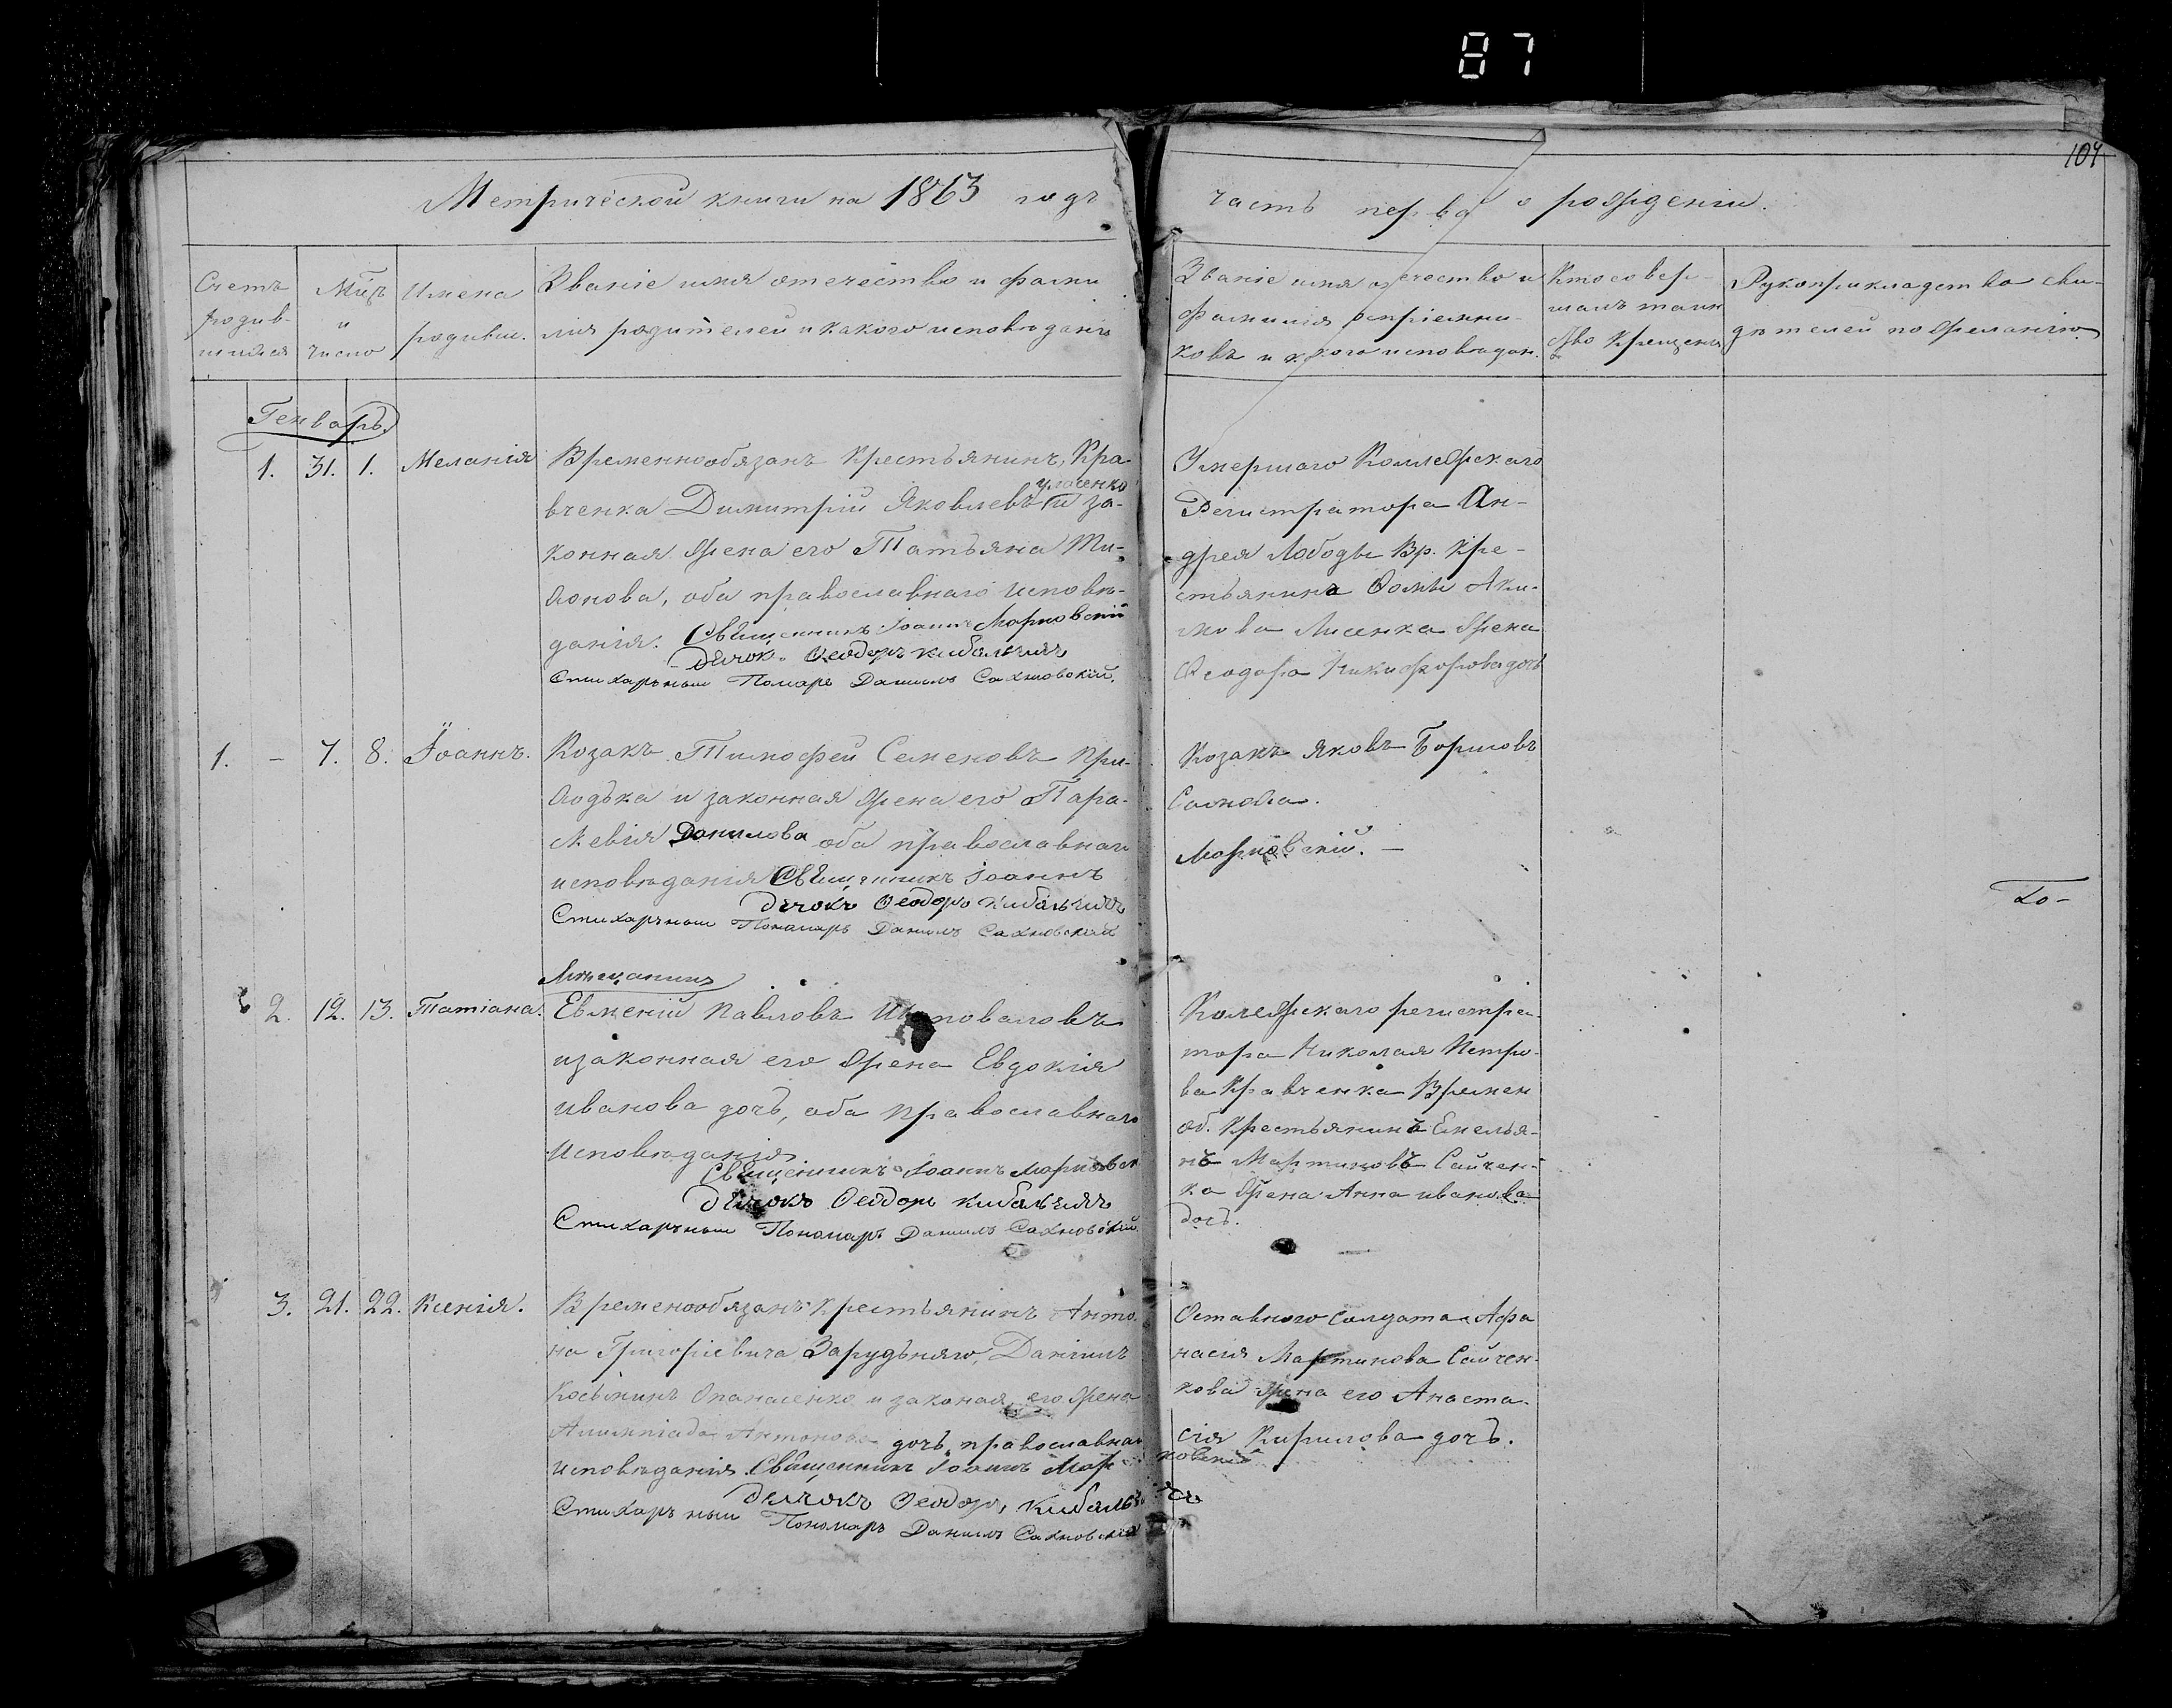 87
104
Метрической книги на 1863 годъ
часть перва о рожденіи.
Счетъ
родив-
шихся
Мцъ
и
число
Имена
родивш.
Званіе имя отечество и фами
лія родителей и какого исповѣданія
Званіе имя отечество и
фамилія воспріемни-
ковъ и какого исповѣдан.
Кто совер-
шалъ таин
ство крещенія
Рукоприкладство сви-
дѣтелей по желанію
Генварь.
1. 31. 1. Меланія
Временнообязанъ Крестьянинъ, Кра-
вченка Димитрій Яковлевъ и за-
конная жена его Татьяна
оба православнаго исповѣ-
данія. Священникъ Іоаннъ Марковскій
Дячокъ Ѳеодоръ Кибальчичъ
Стихарный Понмарь Даниилъ Сахновскій.
Умершаго Коллежскаго
Регистратора Ан-
дрея Лободы Вр. Кре-
стьянина Ѳомы Аки-
мова Лисенка жена
Ѳеодора Никифорова дочь
1. – 7. 8. Іоаннъ.
Козакъ Тимофей Семеновъ При-
ходька и законная жена его Пара-
скевія Данилова оба православнаго
исповѣданія Священникъ Іоаннъ
Дячокъ Ѳеодоръ Кибальчичъ
Стихарный Пономарь Даниилъ Сахновскій
Козакъ Яковъ Борисовъ
Марковскій. –
Хо-
Мѣщанинъ
2. 12. 13. Татіана.
Евменій Павловъ Шаповаловъ
и законная его жена Евдокія
иванова дочь, оба православнаго
Исповѣданія
Священникъ Іоаннъ Марковскій
Дячокъ Ѳеодоръ Кибальчичъ
Стихарный Пономарь Даниилъ Сахновскій
Колежскаго регистра-
тора Николая Петро-
ва Кравченка Времен
об. Крестьянинъ Емелья-
нъ Мартиновъ Сайчен-
ка жена Анна иванова
дочь.
3. 21. 22. Ксенія.
Временообязанъ крестьянинъ Анто-
на Григоріевича Зарудьняго, Даніилъ
Косьминъ Опанасенко и законая его жена
Алимпіада Антонова дочь православнаго
исповѣданія. Священникъ Іоаннъ Мар
ковскій
Дячокъ Ѳеодоръ Кибальчичъ
Стихарный Пономарь Даниилъ Сахновскій
Оставного солдата Афа
насія Мартинова Сайчен-
кова жена его Анаста-
сія Кирилова дочь.